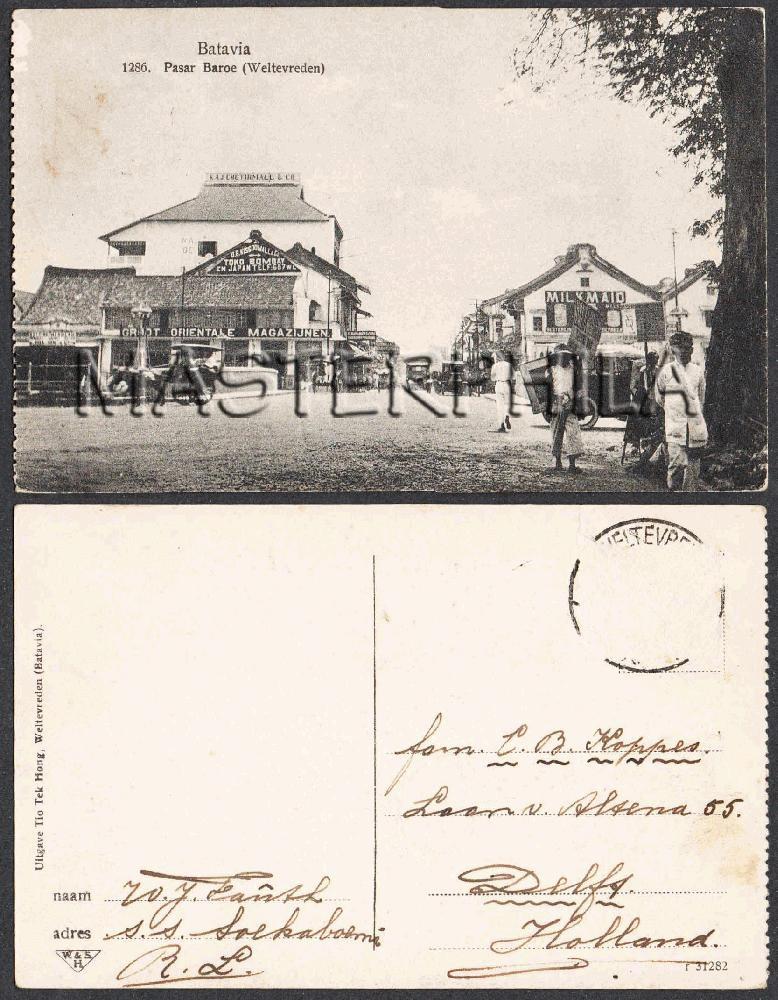 Batavia
1286. Pasar Baroe (Weltevreden)
TOKO BOMBAY
EN JAPAN TELF: 567 WL
GROOT ORIENTALE MAGAZIJNEN.
MILKMAID
MASTERPHILA
WELTEVR
Uitgave Tio Tek Hong, Weltevreden (Batavia).
fam. C. B. Koppes.
Laan v. Altena 55.
Delft.
Holland.
naam W. J. Fauth
adres s.s. Soekaboemi
R. L.
W & S
H
r 31282